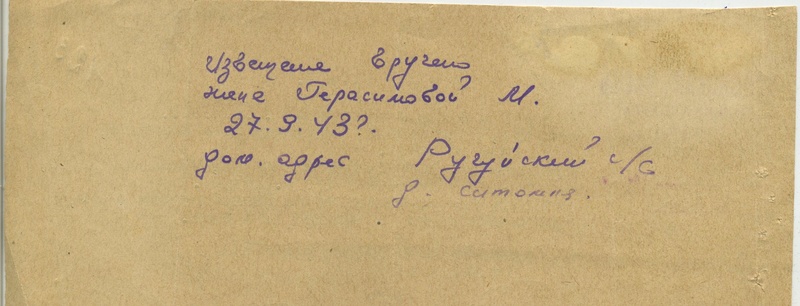 Извещение вручено
жена Герасимовой М.
27.9.43г.
дом. адрес Ругуйский с/с
д. ситомля.